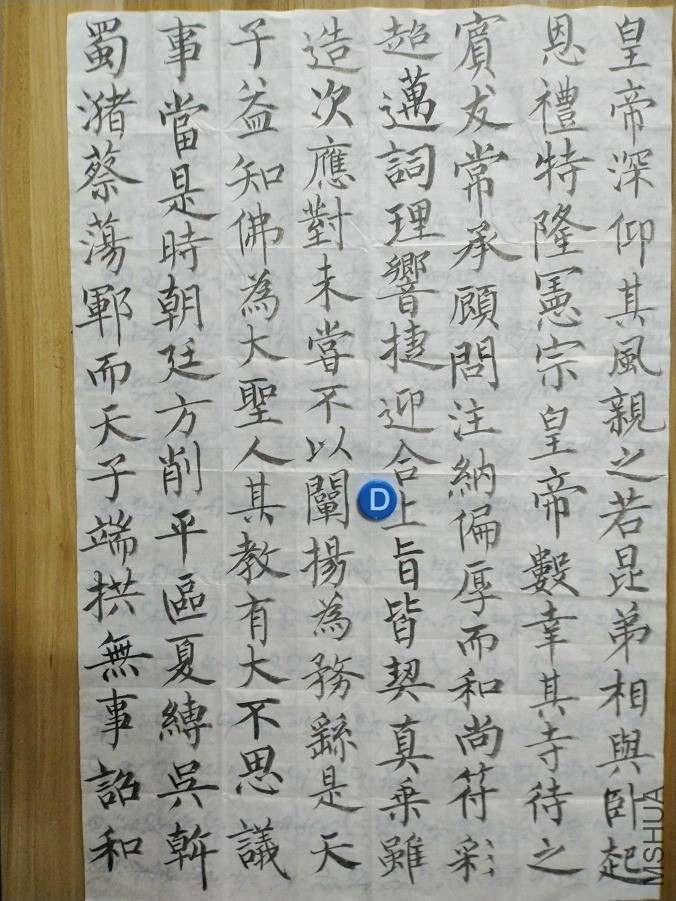 皇帝深仰其風親之若昆弟相與卧起
恩禮特隆憲宗皇帝數幸其寺待之
賓友常承顧問注納偏厚而和尚符彩
超邁詞理響捷迎合上旨皆契真乘雖
造次應對未嘗不以闡揚為務繇是天
子益知佛為大聖人其教有大不思議
事當是時朝廷方削平區夏縛吳斡
蜀潴蔡蕩鄆而天子端拱無事詔和
D
MSHUA